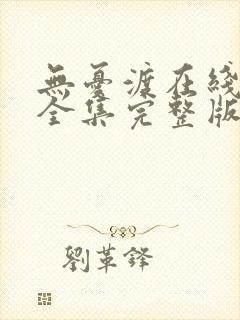 無憂渡在綫
全集完整版
劉革鋒